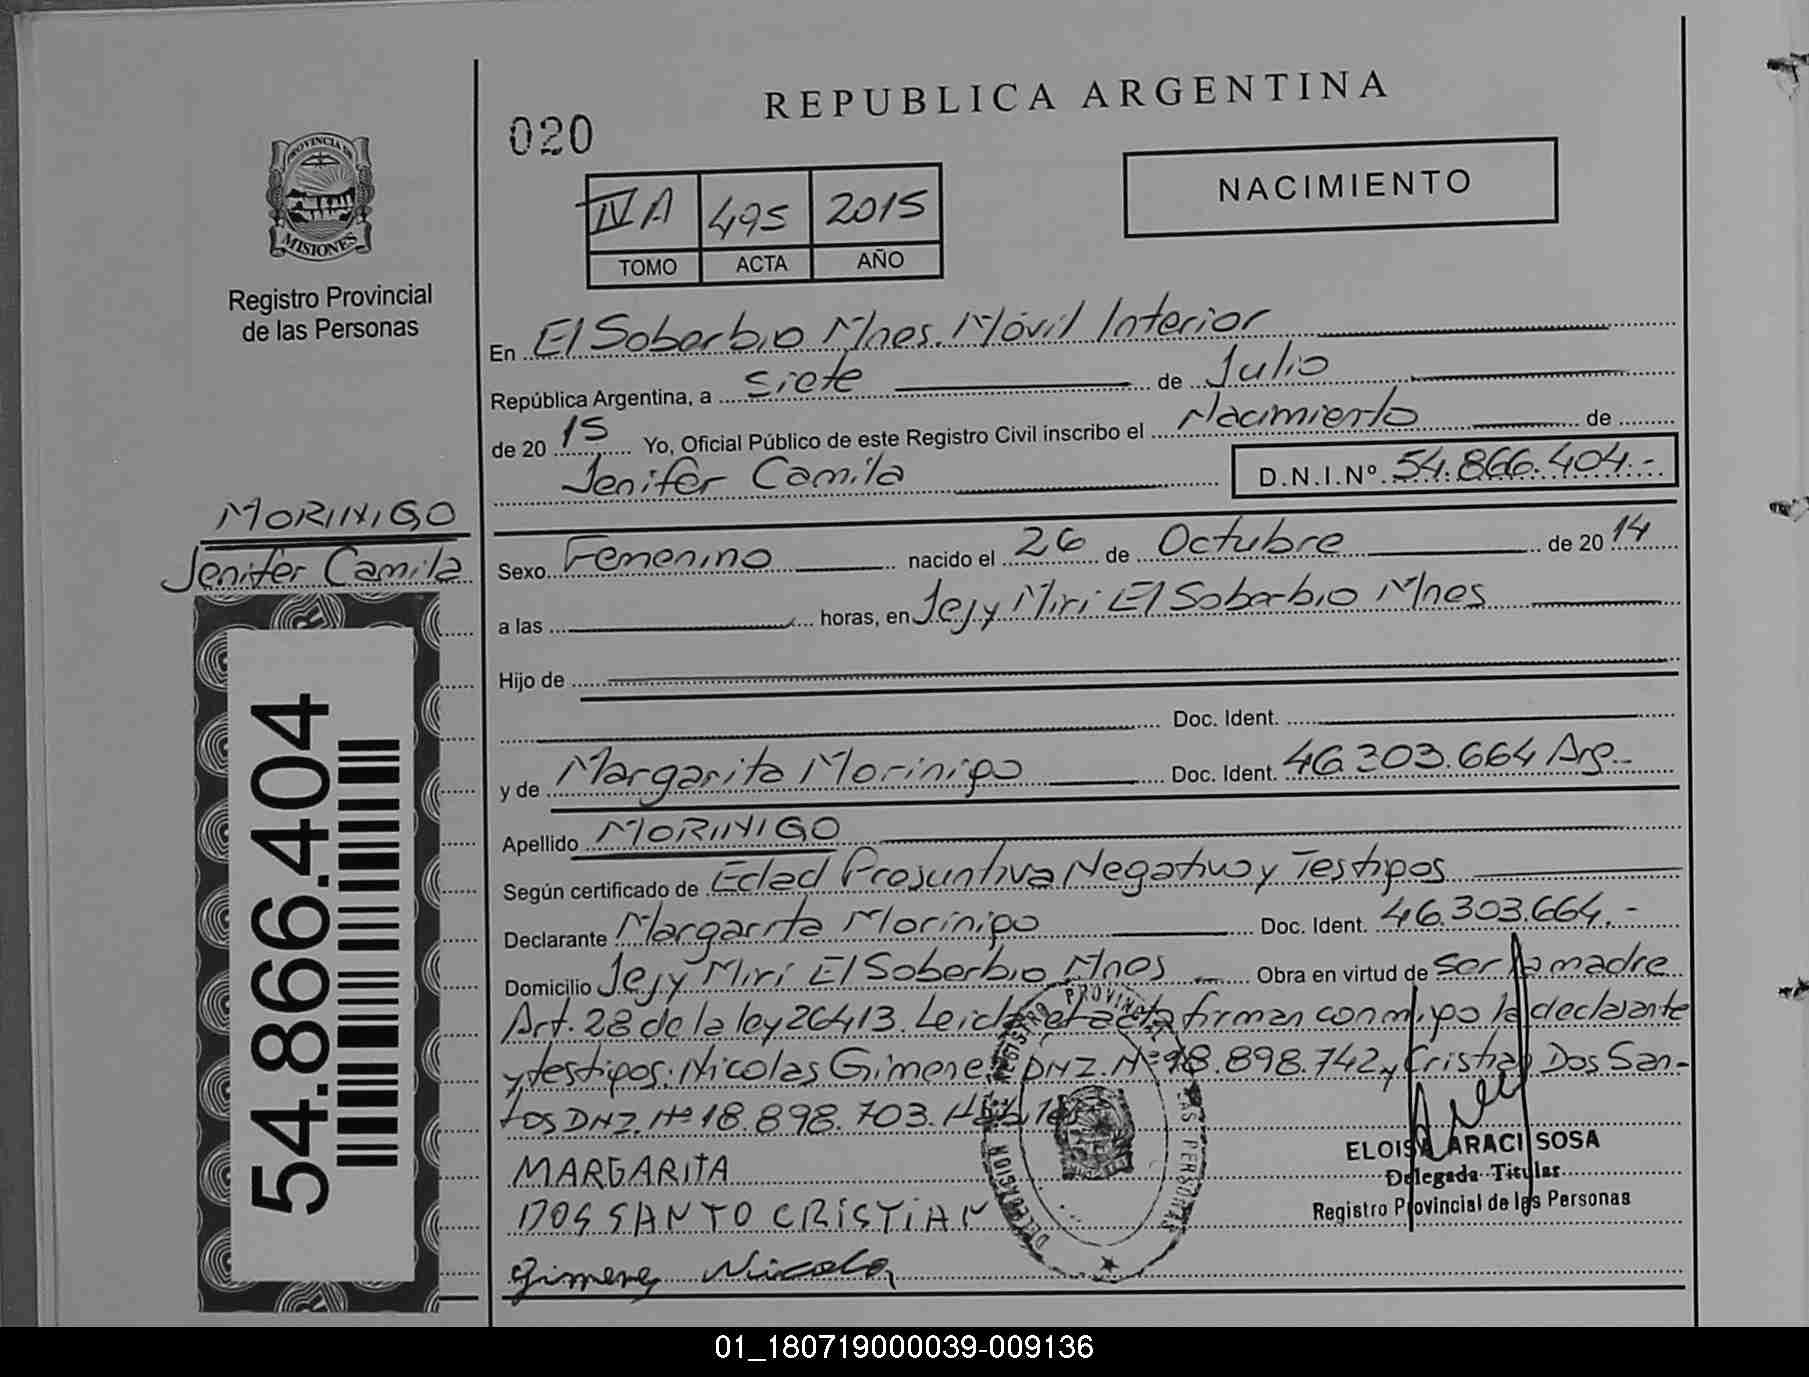 REPUBLICA ARGENTINA
020
NACIMIENTO
IV A 495 2015
TOMO ACTA AÑO
PROVINCIA DE
MISIONES
Registro Provincial
de las Personas
En El Soberbio Mnes. Móvil Interior
República Argentina, a siete de Julio
de 20 15 Yo, Oficial Público de este Registro Civil inscribo el Nacimiento de
Jenifer Camila D.N.I.Nº 54.866.404.-
MORINIGO
Jenifer Camila
Sexo Femenino nacido el 26 de Octubre de 20 14
a las horas, en Jejy Miri El Soberbio Mnes
Hijo de
Doc. Ident.
y de Margarita Morinigo Doc. Ident. 46.303.664 Arg.-
Apellido MORINIGO
Según certificado de Edad Presuntiva Negativo y Testigos
Declarante Margarita Morinigo Doc. Ident. 46.303.664.-
Domicilio Jejy Miri El Soberbio Mnes Obra en virtud de ser la madre
Art. 28 de la ley 26413. Leida el acta firman conmigo la declarante
y testigos: Nicolas Gimene DNI. Nº 18.898.742 y Cristian Dos San-
tos DNI. Nº 18.898.703.
MARGARITA
DOS SANTO CRISTIAN
Gimenez Nicola
ELOISA ARACI SOSA
Delegada Titular
Registro Provincial de las Personas
REGISTRO PROVINCIAL DE LAS PERSONAS
DELEGACION
54.866.404
01_180719000039-009136